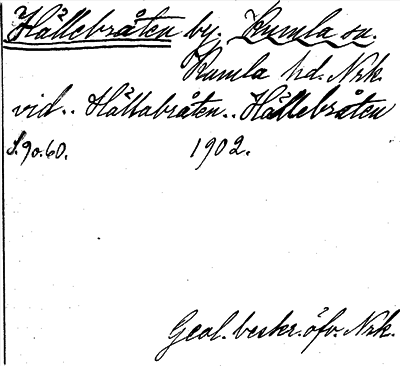 Hållebråten by. Kumla sn.
Kumla hd. Nrk.
vid.. Hållabråten.. Hällebråten
S. 90. 60. 1902.
Geol. beskr. öfv. Nrk.